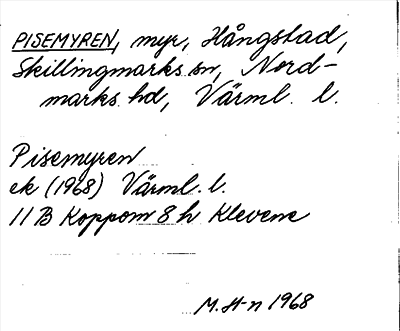 PISEMYREN, myr, Hångstad,
Skillingmarks sn, Nord-
marks hd, Värml. l.
Pisemyren
ek (1968) Värml. l.
11B Koppom 8h Klevene
M. H-n 1968